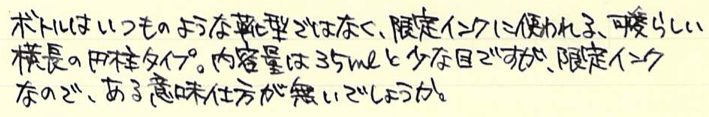 ボトルはいつものような靴型ではなく、限定インクに使われる、可愛らしい
横長の円柱タイプ。内容量は35mlと少な目ですが、限定インク
なので、ある意味仕方が無いでしょうか。